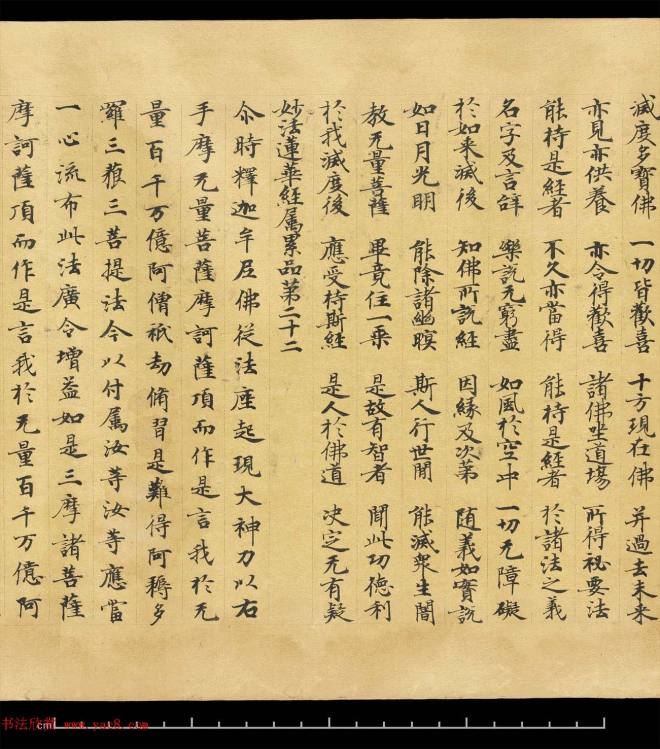 滅度多寶佛 一切皆歡喜 十方現在佛 并過去未来
亦見亦供養 亦令得歡喜 諸佛坐道場 所得祕要法
能持是經者 不久亦當得 能持是經者 於諸法之義
名字及言辝 樂說无窮盡 如風於空中 一切无障礙
於如来滅後 知佛所說經 因緣及次第 随義如實說
如日月光明 能除諸幽暝 斯人行世間 能滅衆生闇
教无量菩薩 畢竟住一乘 是故有智者 聞此功德利
於我滅度後 應受持斯經 是人於佛道 决定无有疑
妙法蓮華經属累品第二十二
尒時釋迦牟尼佛従法座起現大神力以右
手摩无量菩薩摩訶薩頂而作是言我於无
量百千万億阿僧祇劫脩習是難得阿耨多
羅三藐三菩提法今以付属汝等汝等應當
一心流布此法廣令增益如是三摩諸菩薩
摩訶薩頂而作是言我於无量百千万億阿
书法欣赏 www.yac8.com
cm